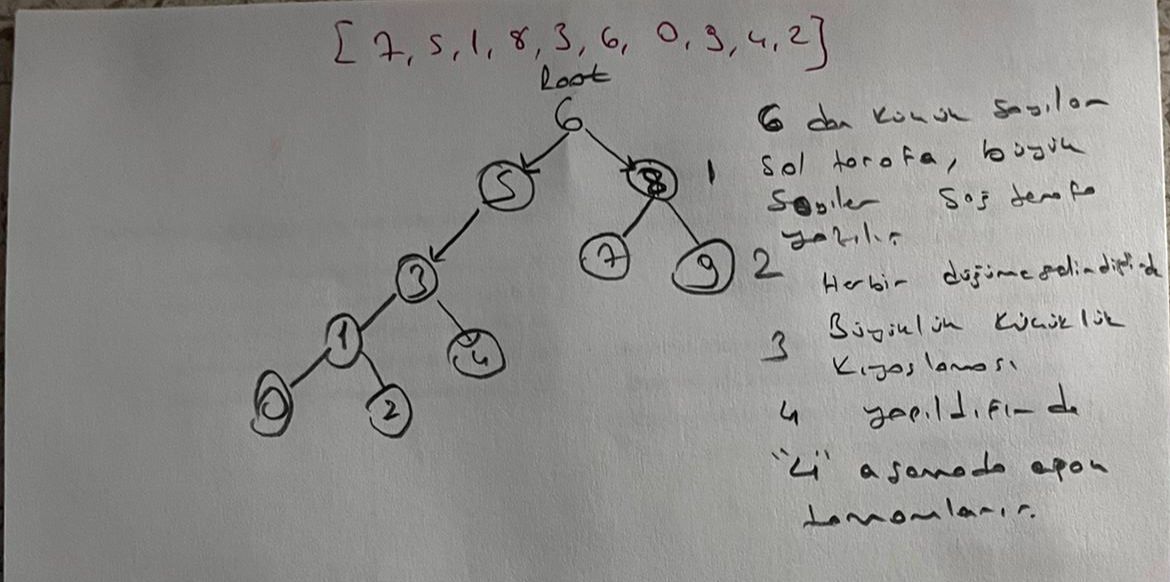 [ 7, 5, 1, 8, 3, 6, 0, 9, 4, 2]
Root
6
5
8
3
7
9
1
4
0
2
6 dan küçük sayılar
sol tarafa, büyük
1
sayılar sağ tarafa
yazılır
2
Herbir düğüme gelindiğinde
Büyüklük küçüklük
3
kıyaslaması
4 yapıldığında
"4" aşamada apaç
tamamlanır.